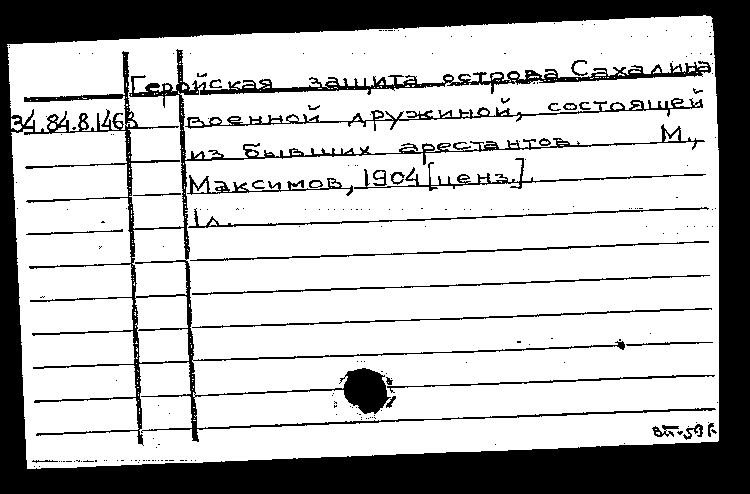 Геройская защита острова Сахалина
34.84.8.1468 военной дружиной, состоящей
из бывших арестантов. М.,
Максимов, 1904 [ценз.].
1л.